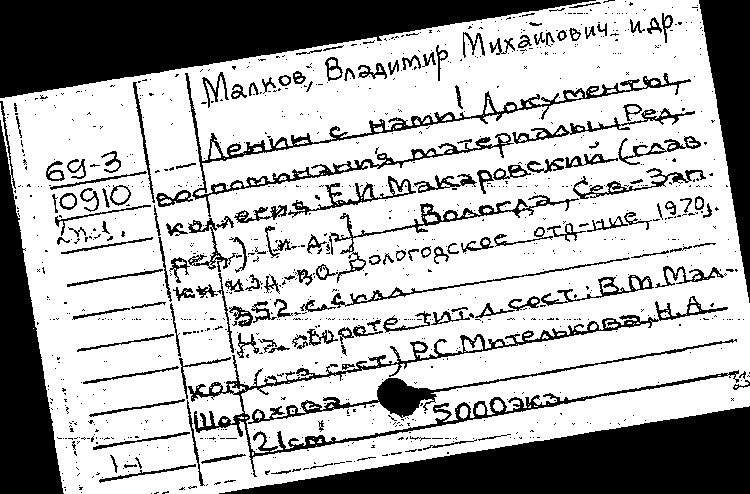 Малков, Владимир Михайлович и др.
Ленин с нами! Документы,
69-3
воспоминания, материалы. [Ред.
10910
коллегия: Е.И. Макаровский (глав.
2п.л.
ред.) [и др.]. [Вологда, Сев.-Зап.
кн. изд-во, Вологодское отд-ние, 1970].
352 с. с илл.
На обороте тит. л. сост.: В.М. Мал-
ков (отв. сост.), Р.С. Мителькова, Н.А.
Шорохова.
21 см. 5000 экз.